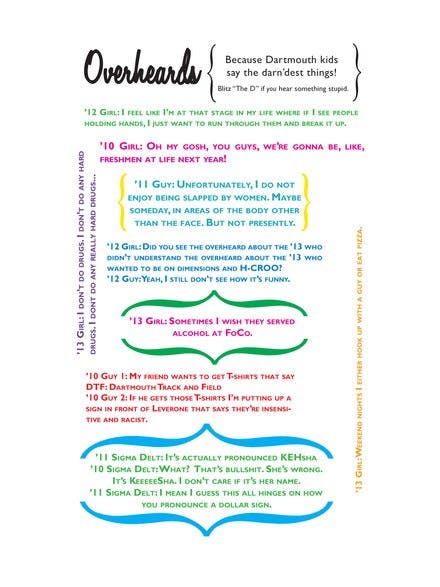 Overheards
Because Dartmouth kids
say the darn'dest things!
Blitz "The D" if you hear something stupid.
'12 Girl: I feel like I'm at that stage in my life where if I see people
holding hands, I just want to run through them and break it up.
'10 Girl: Oh my gosh, you guys, we're gonna be, like,
freshmen at life next year!
'13 Girl: I don't do drugs. I don't do any hard
drugs. I dont do any really hard drugs...
'11 Guy: Unfortunately, I do not
enjoy being slapped by women. Maybe
someday, in areas of the body other
than the face. But not presently.
'12 Girl: Did you see the overheard about the '13 who
didn't understand the overheard about the '13 who
wanted to be on dimensions and H-CROO?
'12 Guy: Yeah, I still don't see how it's funny.
'13 Girl: Sometimes I wish they served
alcohol at FoCo.
'13 Girl: Weekend nights I either hook up with a guy or eat pizza.
'10 Guy 1: My friend wants to get T-shirts that say
DTF: Dartmouth Track and Field
'10 Guy 2: If he gets those T-shirts I'm putting up a
sign in front of Leverone that says they're insensi-
tive and racist.
'11 Sigma Delt: It's actually pronounced KEHsha
'10 Sigma Delt: What? That's bullshit. She's wrong.
It's KeeeeeSha. I don't care if it's her name.
'11 Sigma Delt: I mean I guess this all hinges on how
you pronounce a dollar sign.